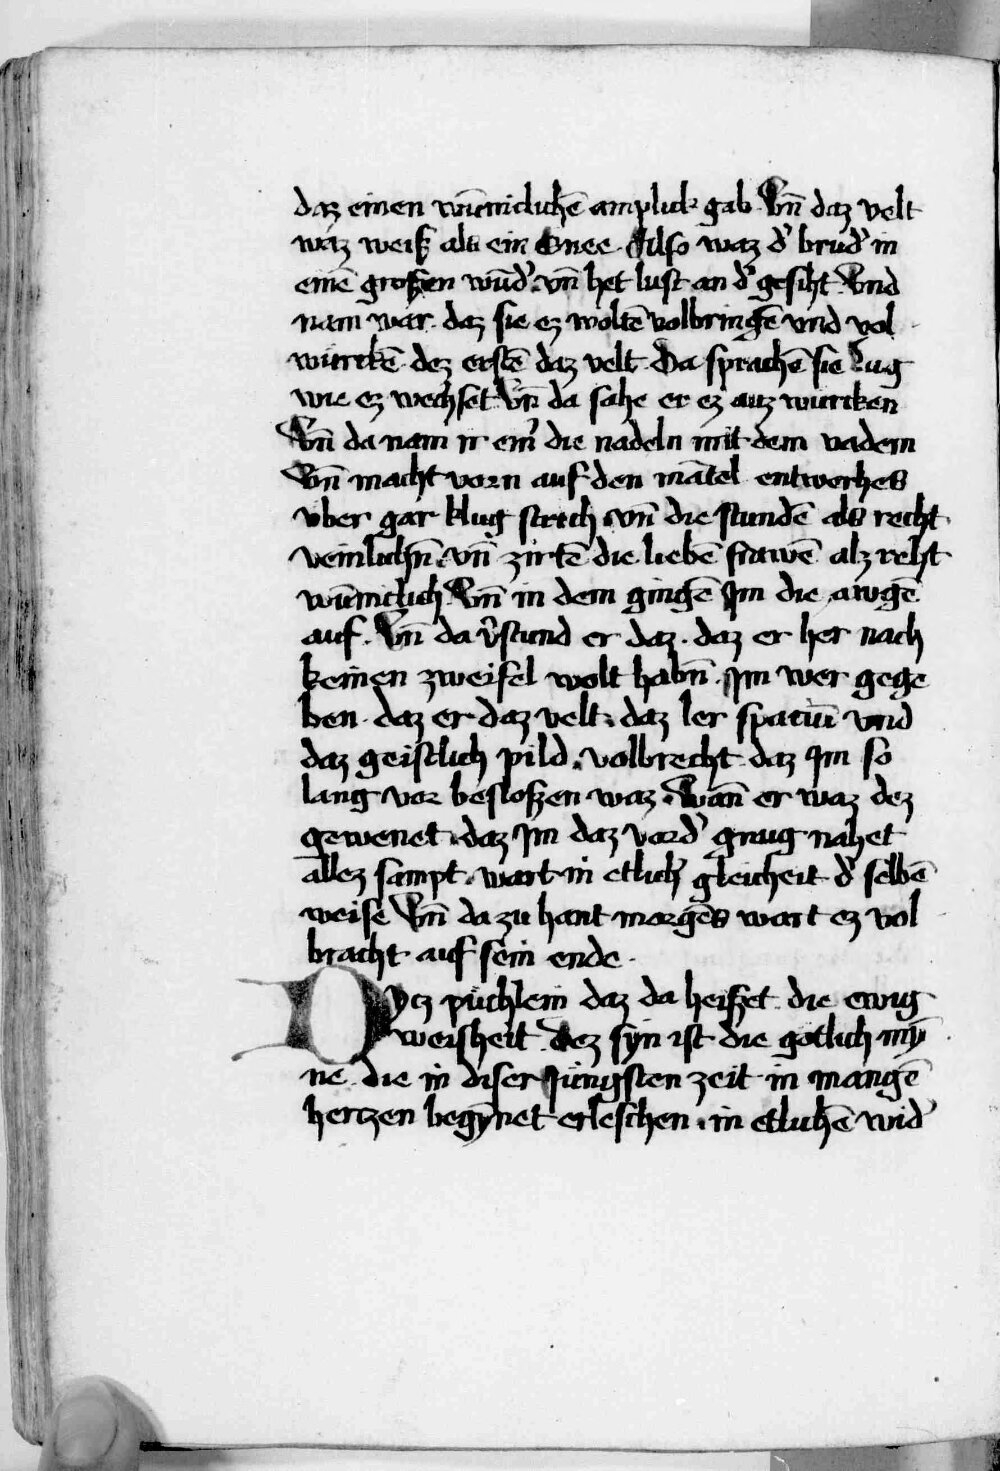 daz einen wūniclichē amplick gab Vn̄ daz velt
waz weiß als ein Snee. Also waz d' brud' in
einē großen wūd'. vn̄ het lust an d' gesiht. Vnd
nam war. daz sie ez woltē volbringē vnd vol
wurckē. dez erstē daz velt. Da sprachē sie Lug
wie ez wechset Vn̄ da sahe er ez auz wurcken
Vn̄ da nam ir ein' die nadeln mit dem vadem
Vn̄ macht vorn auf den mātel entworhes
vber gar klug strich. vn̄ die stundē als recht
veinlichn̄. vn̄ zirtē die liebē frawē alz reht
wūniclich. Vn̄ in dem gingē Im die awgē
auf. Vn̄ da v'stund er daz. daz er her nach
keinen zweifel wolt habn̄. Im wer gege
ben. daz er daz velt. daz ler spaciū vnd
daz geistlich pild. volbrecht. daz Im so
lang vor besloßen waz. Wān er waz dez
gewenet. daz Im daz vord' gnug nahet
allez sampt. wart in etlich' gleicheit d' selbē
weise Vn̄ da zu hant morgēs wart ez vol
bracht auf sein ende.
Dycz püchlein daz da heißet die ewig
weisheit. dez syn ist die gotlich my̅
ne. die in diser Jüngsten zeit in mangē
hertzen begy̅net erleschen. in etlichē wid'